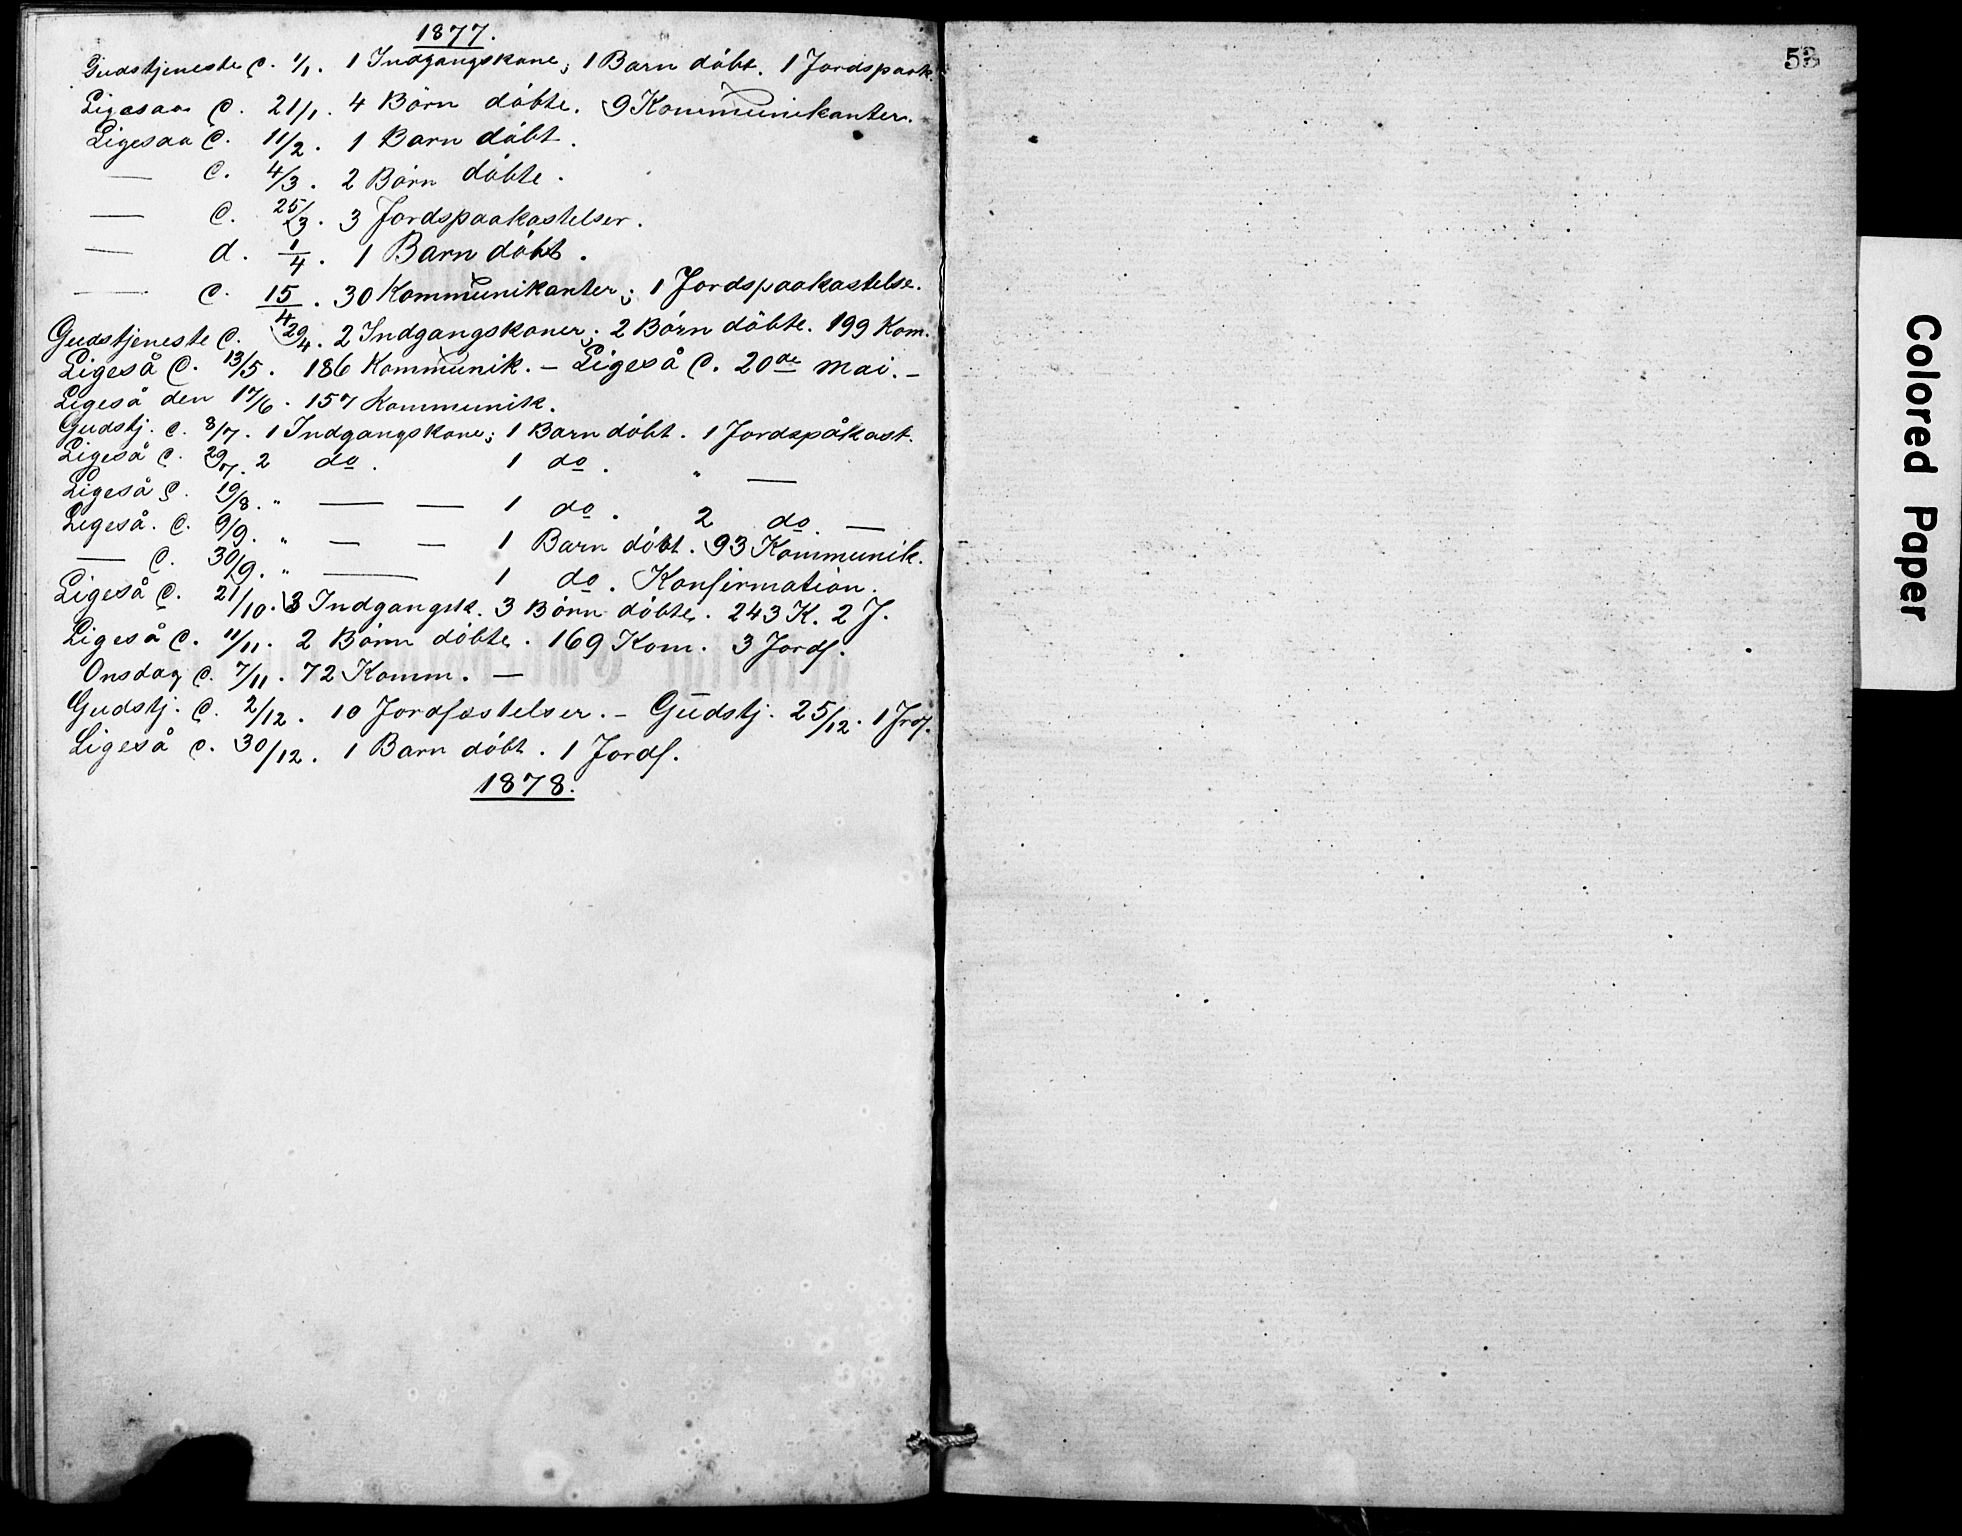 1877.
Gudstjeneste d. 1/1. 1 Indgangskone; 1 Barn döbt. 1 Jordspaak.
Ligesaa d. 21/1. 4 Börn döbte. 9 Kommunikanter.
Ligesaa d. 11/2. 1 Barn döbt.
— d. 4/3. 2 Börn döbte.
— d. 25/3. 3 Jordspaakastelser.
— d. 1/4. 1 Barn döbt.
— d. 15/4. 30 Kommunikanter; 1 Jordspaakastelse.
Gudstjeneste d. 29/4. 2 Indgangskoner; 2 Börn döbte. 199 Kom.
Ligeså d. 13/5. 186 Kommunik. – Ligeså d. 20de mai. –
Ligeså den 17/6. 157 Kommunik.
Gudstj. d. 8/7. 1 Indgangskone; 1 Barn döbt. 1 Jordspåkast.
Ligeså d. 29/7. 2 do. 1 do. " —
Ligeså d. 19/8. " — — 1 do. 2 do. —
Ligeså. d. 9/9. " — — 1 Barn döbt. 93 Kommunik.
— d. 30/9. " — 1 do. Konfirmation.
Ligeså d. 21/10. 3 Indgangsk. 3 Börn döbte. 243 K. 2 J.
Ligeså d. 11/11. 2 Börn döbte. 169 Kom. 3 Jordf.
Onsdag d. 7/11. 72 Komm. —
Gudstj. d. 2/12. 10 Jordfæstelser. – Gudstj. 25/12. 1 Jrdf.
Ligeså d. 30/12. 1 Barn döbt. 1 Jordf.
1878.
Colored Paper